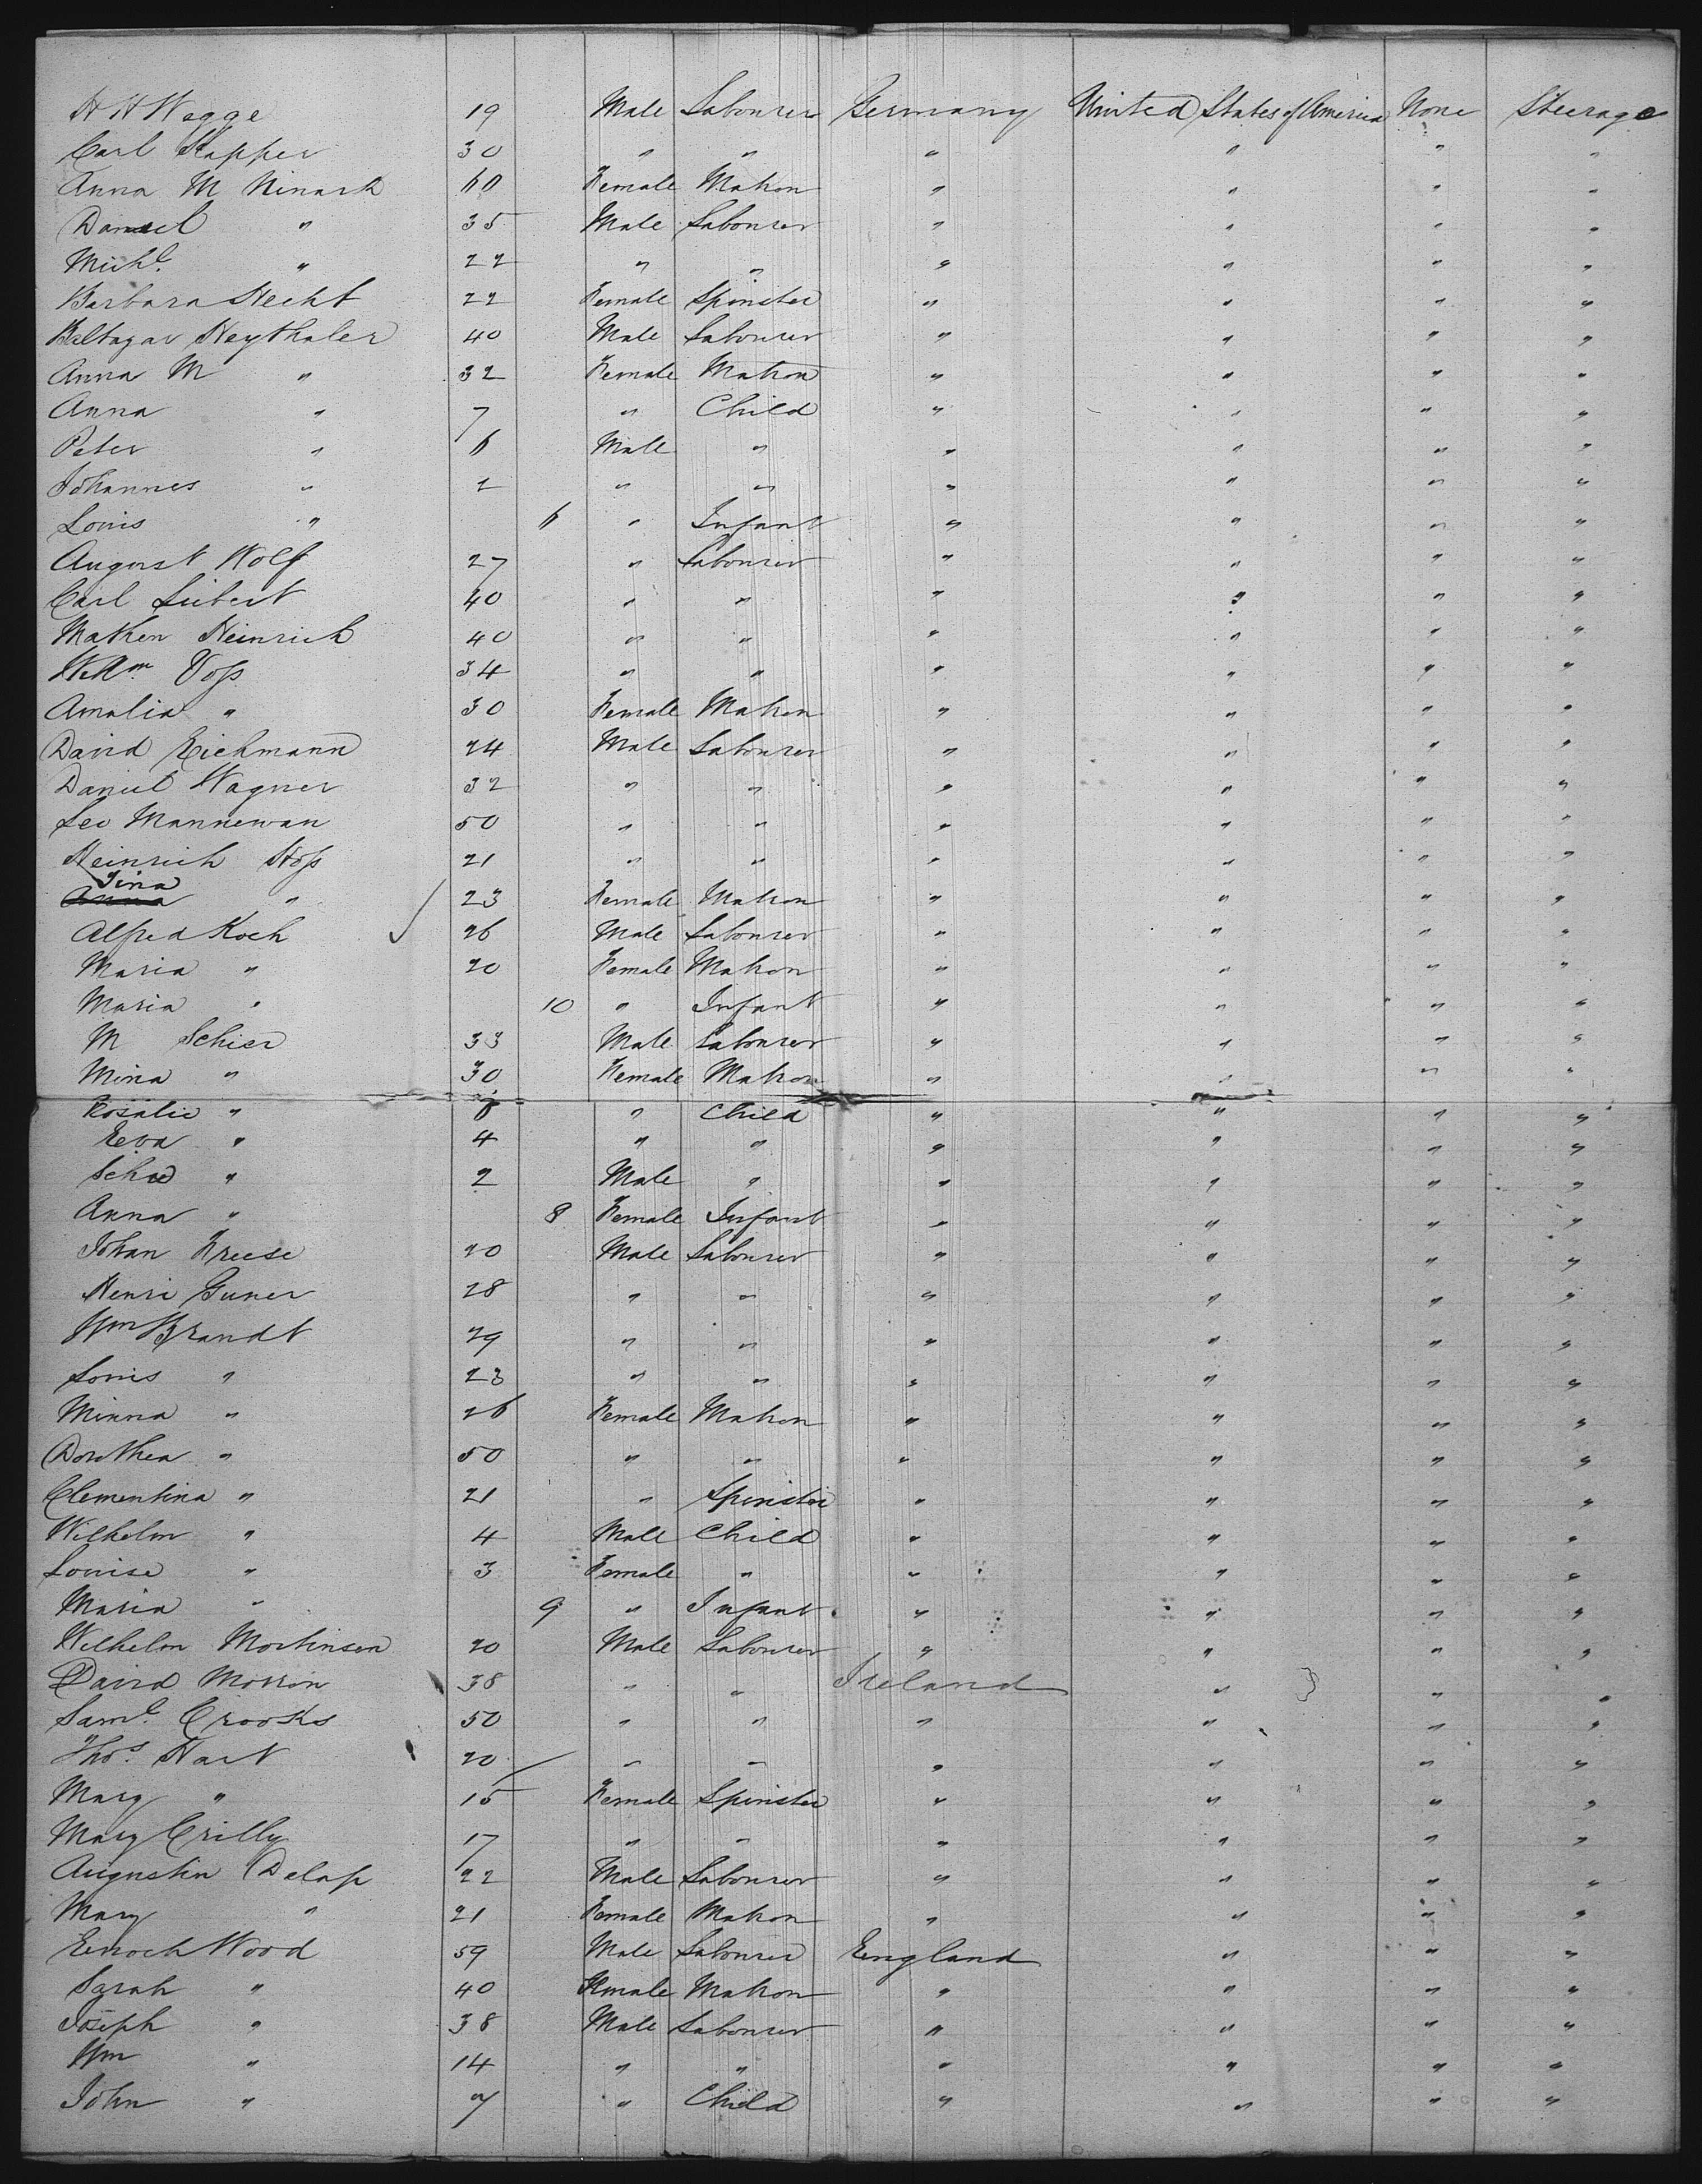 H H Wegge 19 Male Labourer Germany United States of America None Steerage
Carl Kapper 30 " " " " " "
Anna M Ninark 60 Female Matron " " " "
Daniel " 35 Male Labourer " " " "
Michl. " 22 " " " " " "
Barbara Hecht 22 Female Spinster " " " "
Baltazar Heythaler 40 Male Labourer " " " "
Anna M " 32 Female Matron " " " "
Anna " 7 " Child " " " "
Peter " 6 Male " " " " "
Johannes " 2 " " " " " "
Louis " 6 " Infant " " " "
August Wolf 27 " Labourer " " " "
Carl Liebert 40 " " " " " "
Mathen Heinrich 40 " " " " " "
Willm Voss 34 " " " " " "
Amalia " 30 Female Matron " " " "
David Eichmann 24 Male Labourer " " " "
Daniel Wagner 32 " " " " " "
Leo Mannewan 50 " " " " " "
Heinrich Hoss 21 " " " " " "
Tina " 23 Female Matron " " " "
Alfred Koch 26 Male Labourer " " " "
Maria " 20 Female Matron " " " "
Maria " 10 " Infant " " " "
M Schier 33 Male Labourer " " " "
Mina " 30 Female Matron " " " "
Rosalie " " Child " " " "
Eva " 4 " " " " " "
" 2 Male " " " " "
Anna " 8 Female Infant " " " "
Johan Freese 20 Male Labourer " " " "
Henri Guner 28 " " " " " "
Wm Brandt 29 " " " " " "
Louis " 23 " " " " " "
Minna " 26 Female Matron " " " "
Dorothea " 50 " " " " " "
Clementina " 21 " Spinster " " " "
Wilhelm " 4 Male Child " " " "
Louise " 3 Female " " " " "
Maria " 9 " Infant " " " "
Wilhelm Mortinsen 20 Male Labourer " " " "
David Morrin 38 " " Ireland " " "
Saml. Crooks 50 " " " " " "
Thos. Hart 20 " " " " " "
Mary " 15 Female Spinster " " " "
Mary Crilly 17 " " " " " "
Augustin Delap 22 Male Labourer " " " "
Mary " 21 Female Matron " " " "
Enoch Wood 59 Male Labourer England " " "
Sarah " 40 Female Matron " " " "
Joseph " 38 Male Labourer " " " "
Wm " 14 " " " " " "
John " 7 " Child " " " "